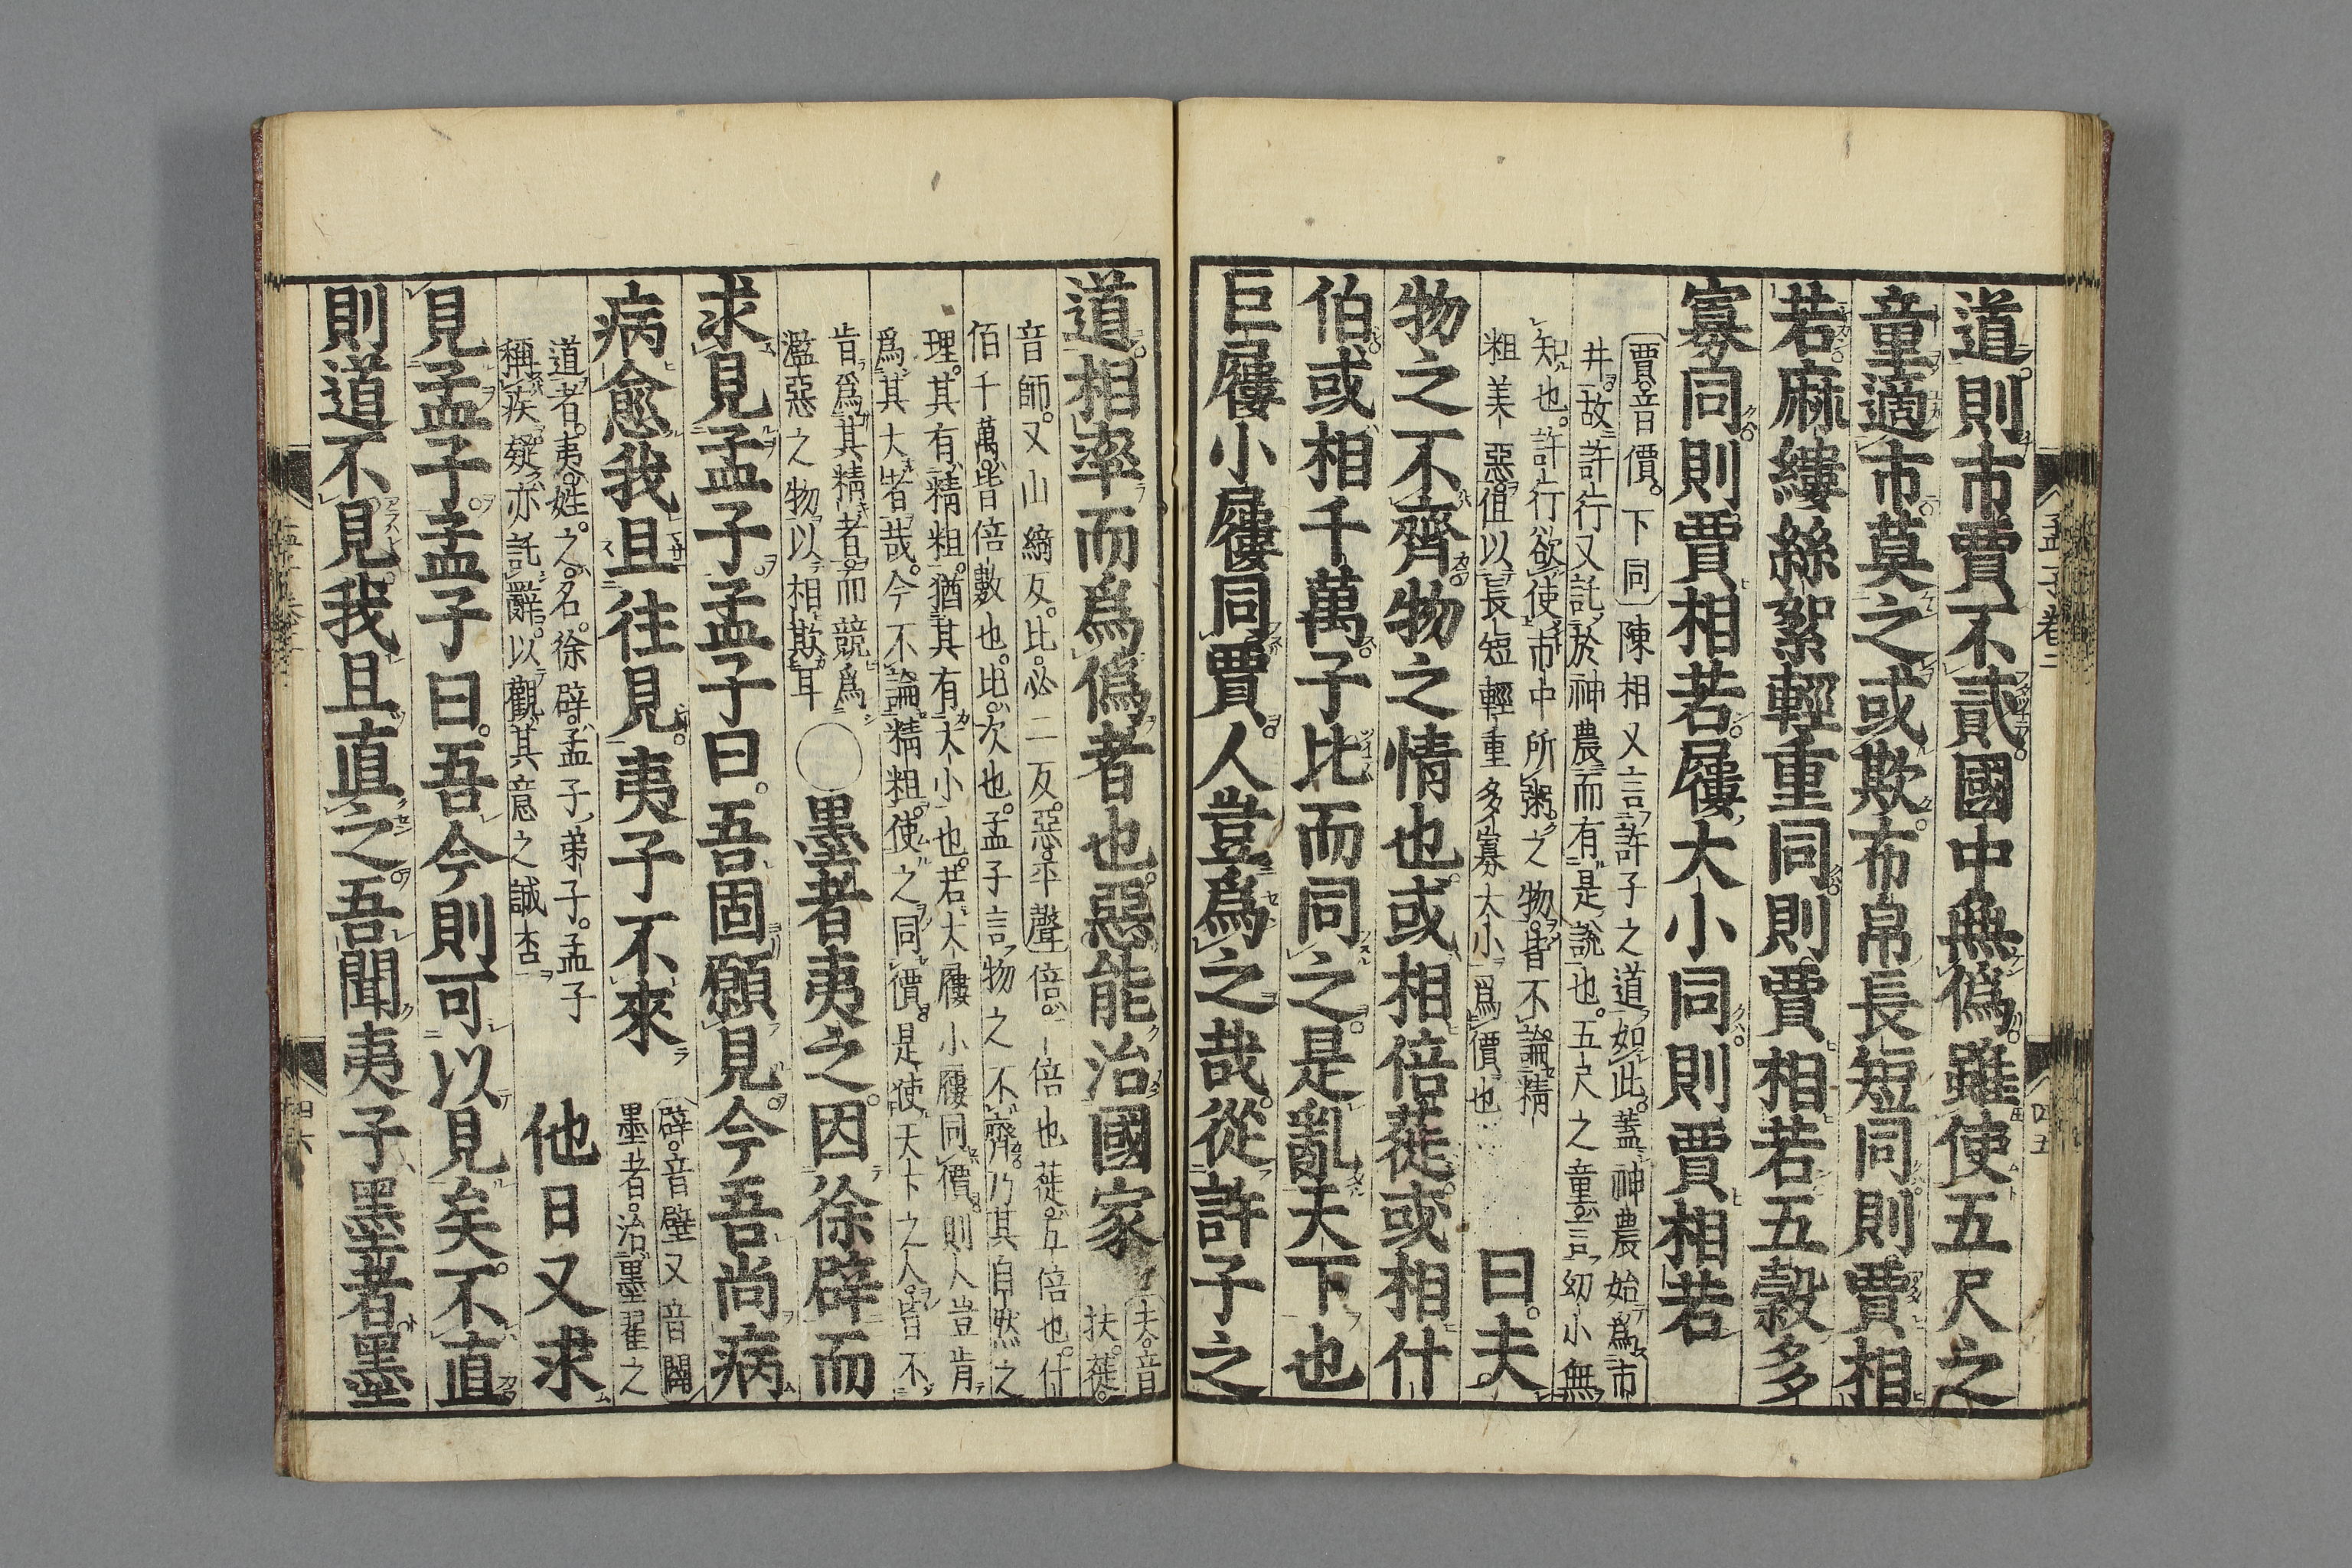 道則市賈不貳國中無僞雖使五尺之
童適市莫之或欺布帛長短同則賈相
若麻縷絲絮輕重同則賈相若五穀多
寡同則賈相若屨大小同則賈相若
賈音價。下同陳相又言許子之道如此。蓋神農始爲市
井。故許行又託於神農而有是說也。五尺之童。言幼小無
知也。許行欲使市中所粥之物。皆不論精
粗美惡。但以長短輕重多寡大小爲價也
曰。夫
物之不齊物之情也。或相倍蓰。或相什
伯。或相千萬。子比而同之。是亂天下也
巨屨小屨同賈。人豈爲之哉。從許子之
道。相率而爲僞者也。惡能治國家
夫音
扶。蓰。
音師。又山綺反。比。必二反。惡。平聲倍。一倍也蓰。五倍也。什
佰千萬。皆倍數也。比。次也。孟子言物之不齊。乃其自然之
理。其有精粗。猶其有大小也。若大屨小屨同價。則人豈肯
爲其大者哉。今不論精粗。使之同價。是使天下之人。皆不
肯爲其精者。而競爲
濫惡之物以相欺耳
○墨者夷之。因徐辟而
求見孟子。孟子曰。吾固願見。今吾尚病
病愈我且往見。夷子不來
辟。音壁又音闢
墨者。治墨翟之
道者。夷。姓。之。名。徐辟。孟子弟子。孟子
稱疾。疑亦託辭。以觀其意之誠否
他日又求
見孟子。孟子曰。吾今則可以見矣。不直
則道不見。我且直之。吾聞夷子墨者。墨
孟子卷二
四五
四六